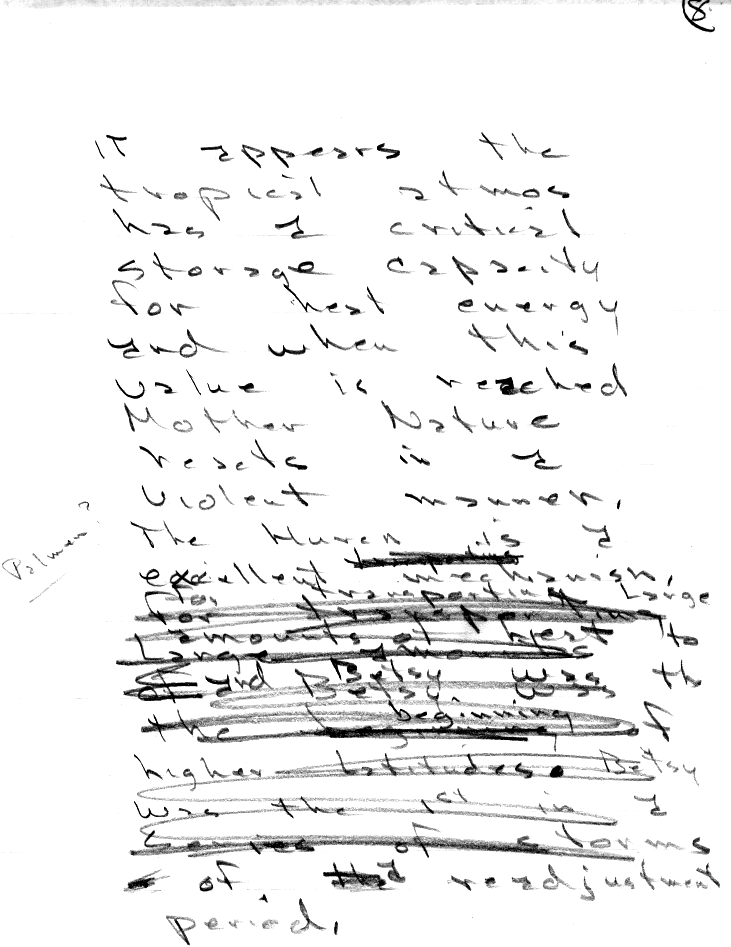 8
IT appears the
tropical atmos
has a critical
storage capacity
for heat energy
and when this
value is reached
Mother Nature
resets in a
violent manner.
The Huren is a
Palmen?
excellent mechanism,
for transporting Large
for transporting
amounts of heat to
Large amounts
of and Betsy was th
Betsy was
the beginning of
higher latitudes. Betsy
was the 1st in a
Series of storms
of a readjustment
period.